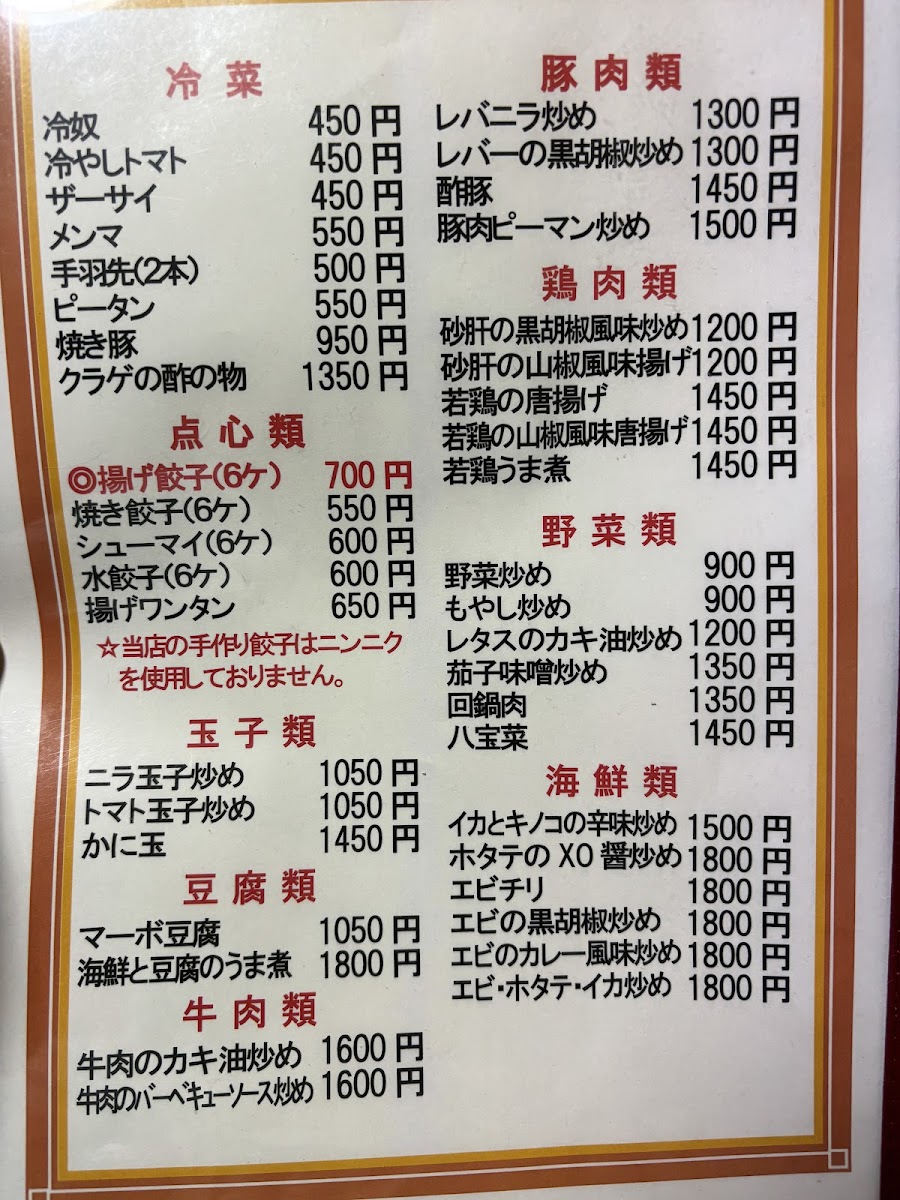 冷菜
冷奴 450円
冷やしトマト 450円
ザーサイ 450円
メンマ 550円
手羽先(2本) 500円
ピータン 550円
焼き豚 950円
クラゲの酢の物 1350円
点心類
◎揚げ餃子(6ケ) 700円
焼き餃子(6ケ) 550円
シューマイ(6ケ) 600円
水餃子(6ケ) 600円
揚げワンタン 650円
☆当店の手作り餃子はニンニク
を使用しておりません。
玉子類
ニラ玉子炒め 1050円
トマト玉子炒め 1050円
かに玉 1450円
豆腐類
マーボ豆腐 1050円
海鮮と豆腐のうま煮 1800円
牛肉類
牛肉のカキ油炒め 1600円
牛肉のバーベキューソース炒め 1600円
豚肉類
レバニラ炒め 1300円
レバーの黒胡椒炒め 1300円
酢豚 1450円
豚肉ピーマン炒め 1500円
鶏肉類
砂肝の黒胡椒風味炒め 1200円
砂肝の山椒風味揚げ 1200円
若鶏の唐揚げ 1450円
若鶏の山椒風味唐揚げ 1450円
若鶏うま煮 1450円
野菜類
野菜炒め 900円
もやし炒め 900円
レタスのカキ油炒め 1200円
茄子味噌炒め 1350円
回鍋肉 1350円
八宝菜 1450円
海鮮類
イカとキノコの辛味炒め 1500円
ホタテのXO醤炒め 1800円
エビチリ 1800円
エビの黒胡椒炒め 1800円
エビのカレー風味炒め 1800円
エビ・ホタテ・イカ炒め 1800円